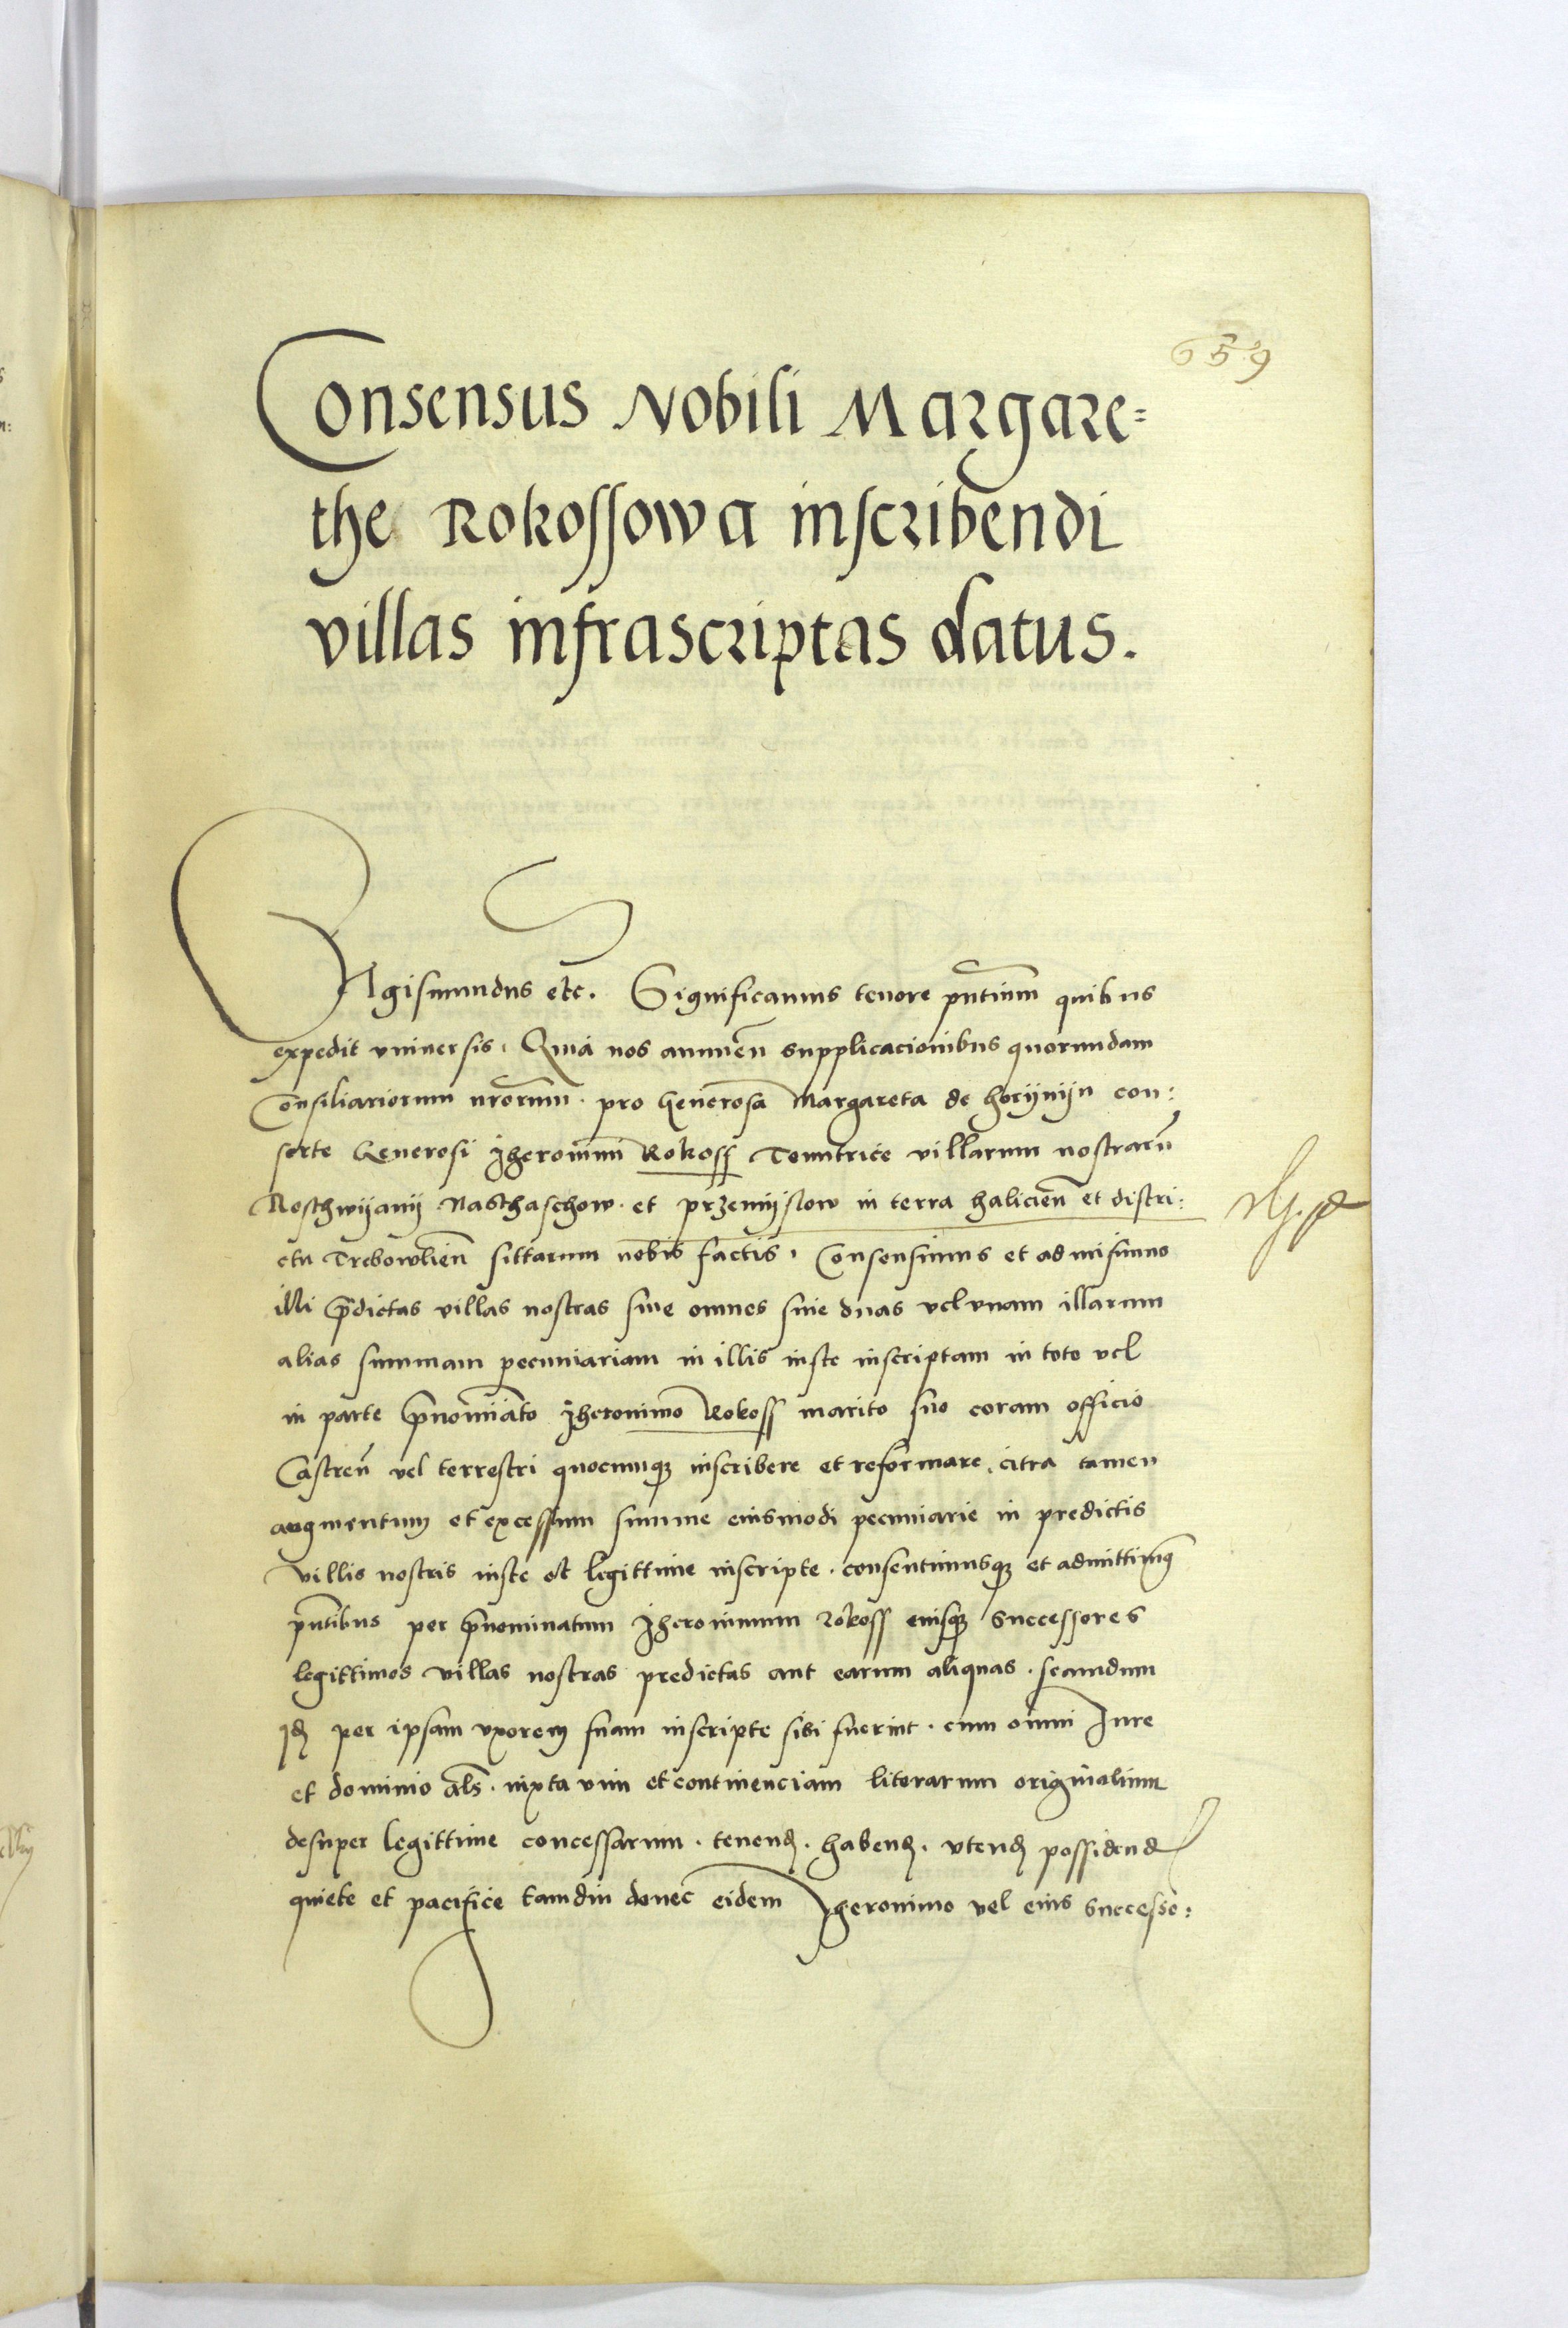 659
Consensus Nobili Margare=
the Rokossowa inscribendi
villas infrascriptas datus.
Sigismundus etc. Significamus tenore pñtium quibus
expedit vniuersis. Quia nos annuen̄ supplicacionibus quorundam
Consiliariorum nr̄orum. pro Generosa Margareta de horÿnÿn con:
sorte Generosi Jheronimi Rokoss Tenutrice villarum nostrarū
Roschwÿanÿ Naschaschow. et przemÿslow in terra halicien̄ et distri:
ctu Trebowlien̄ sittarum nobis factis. Consensimus et admisimus
illi p̄dictas villas nostras siue omnes siue duas vel vnam illarum
alias summam pecuniariam in illis iuste inscriptam in toto vel
in parte p̄nomīato Jheronimo Rokoss marito suo coram officio
Castren̄ vel terrestri quocunqȝ inscribere et reformare. citra tamen
augmentum et excessum summe eiusmodi pecuniarie in predictis
villis nostris iuste et legittime inscripte. consentimusqȝ et admittimꝰ
pñtibus per p̄nominatum Jheronimum Rokoss eiusqȝ successores
legittimos villas nostras predictas aut earum aliquas. secundum
id per ipsam vxorem suam inscripte sibi fuerint. cum omni Jure
et dominio al̄s. iuxta vim et continenciam literarum originalium
desuper legittime concessarum. tenend. habend. vtend possidend
quiete et pacifice tamdiu donec eidem Jheronimo vel eius successo: